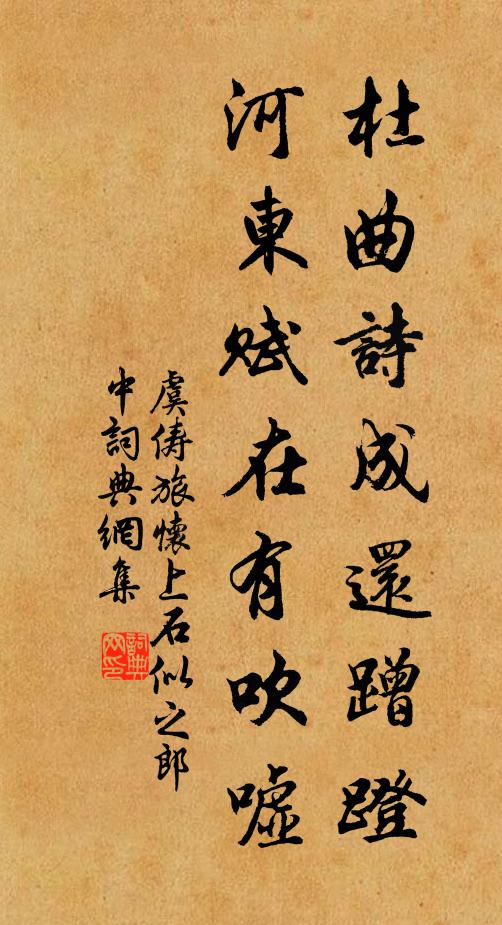 杜曲詩成還蹭蹬
河東賦在有吹噓
虞儔旅懷上石似之郎
中詞典網集
詞典网印